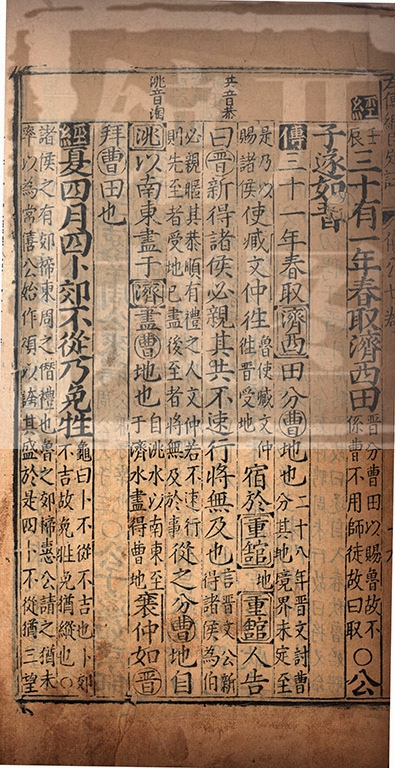 經壬辰三十有一年春取濟西田晉分曹田以賜魯故不係曹不用師徒故曰取○公
子遂如晉
傳三十一年春取濟西田分曹地也二十八年晉文討曹分其地境界未定至
是乃以賜諸侯使臧文仲往魯使臧文仲往晉受地宿於重舘地重舘人告
共音恭
曰晉新得諸侯必親其共不速行將無及也言晉文公新得諸侯為伯
必親暱其恭順有禮之人文仲若不速行則先至者受地已盡後至者將無及於事從之分曹地自
洮音淘
洮以南東盡于濟盡曹地也自洮水以南東至于濟水盡得曹地襄仲如晉
拜曹田也
經夏四月四卜郊不從乃免牲龜曰卜不從不吉也卜郊不吉故免牲免猶縱也○
諸侯之有郊禘東周之僭禮也魯之郊禘惠公請之猶未率以為常僖公始作頌以誇其盛於是四卜不從猶三望